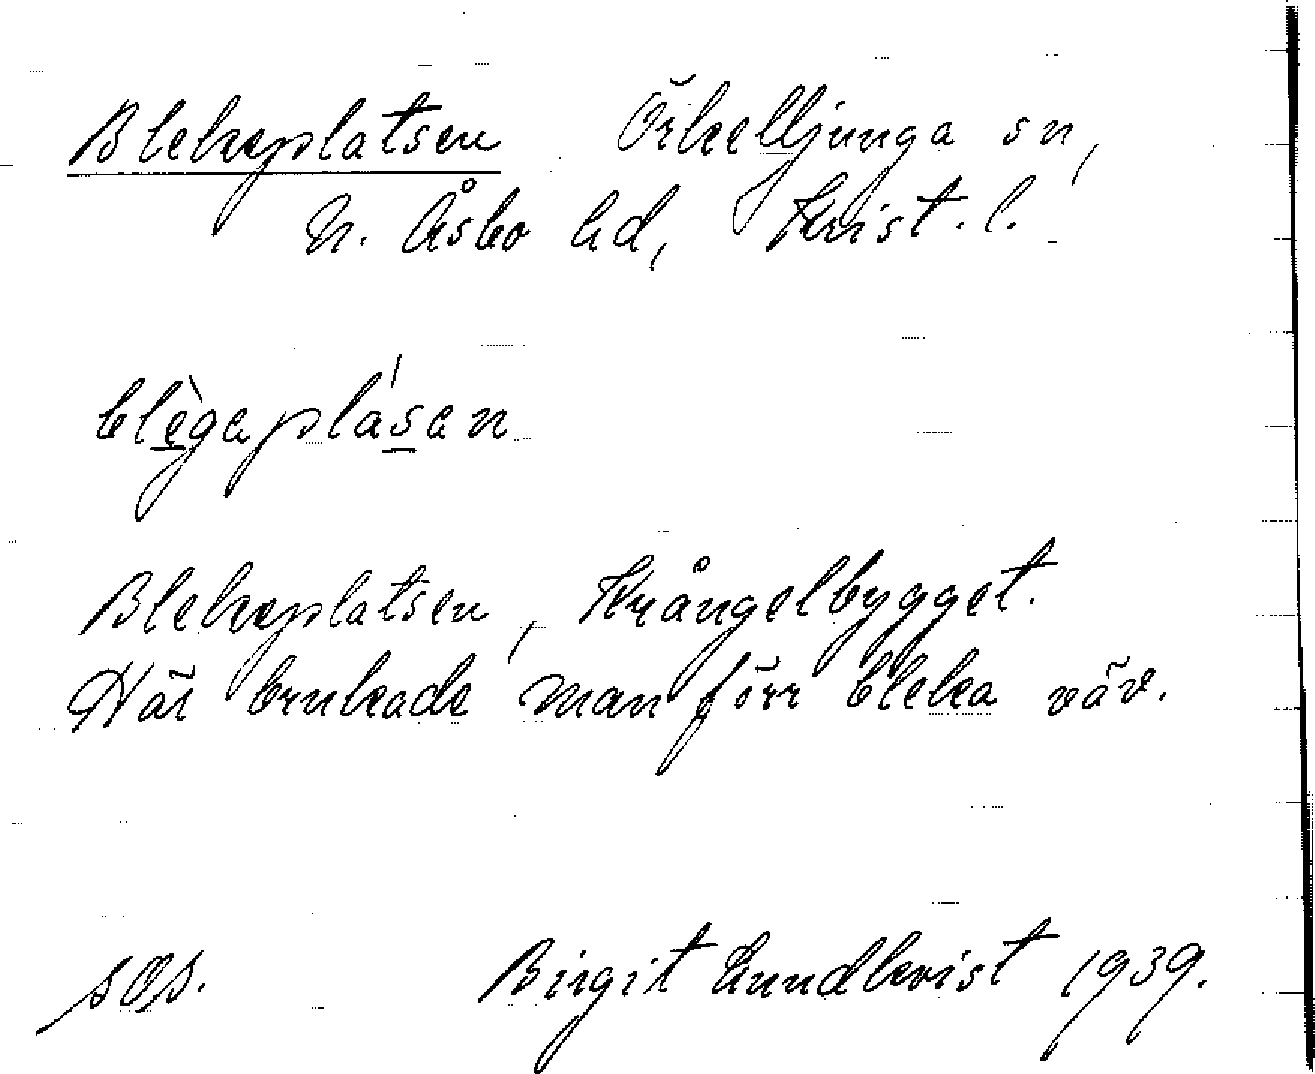 Blekeplatsen Örkelljunga sn,
N. Åsbo hd, Krist. l.
blègaplásan
Blekeplatsen, Krångelbygget.
Här brukade man förr bleka väv.
Birgit Lundkvist 1939.